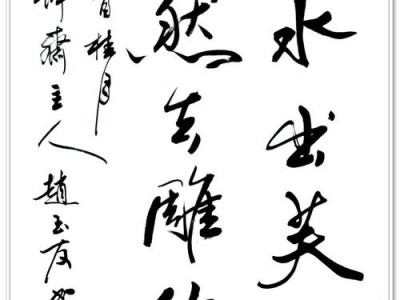 水出芙
然去雕
桂月
齋主人趙玉友